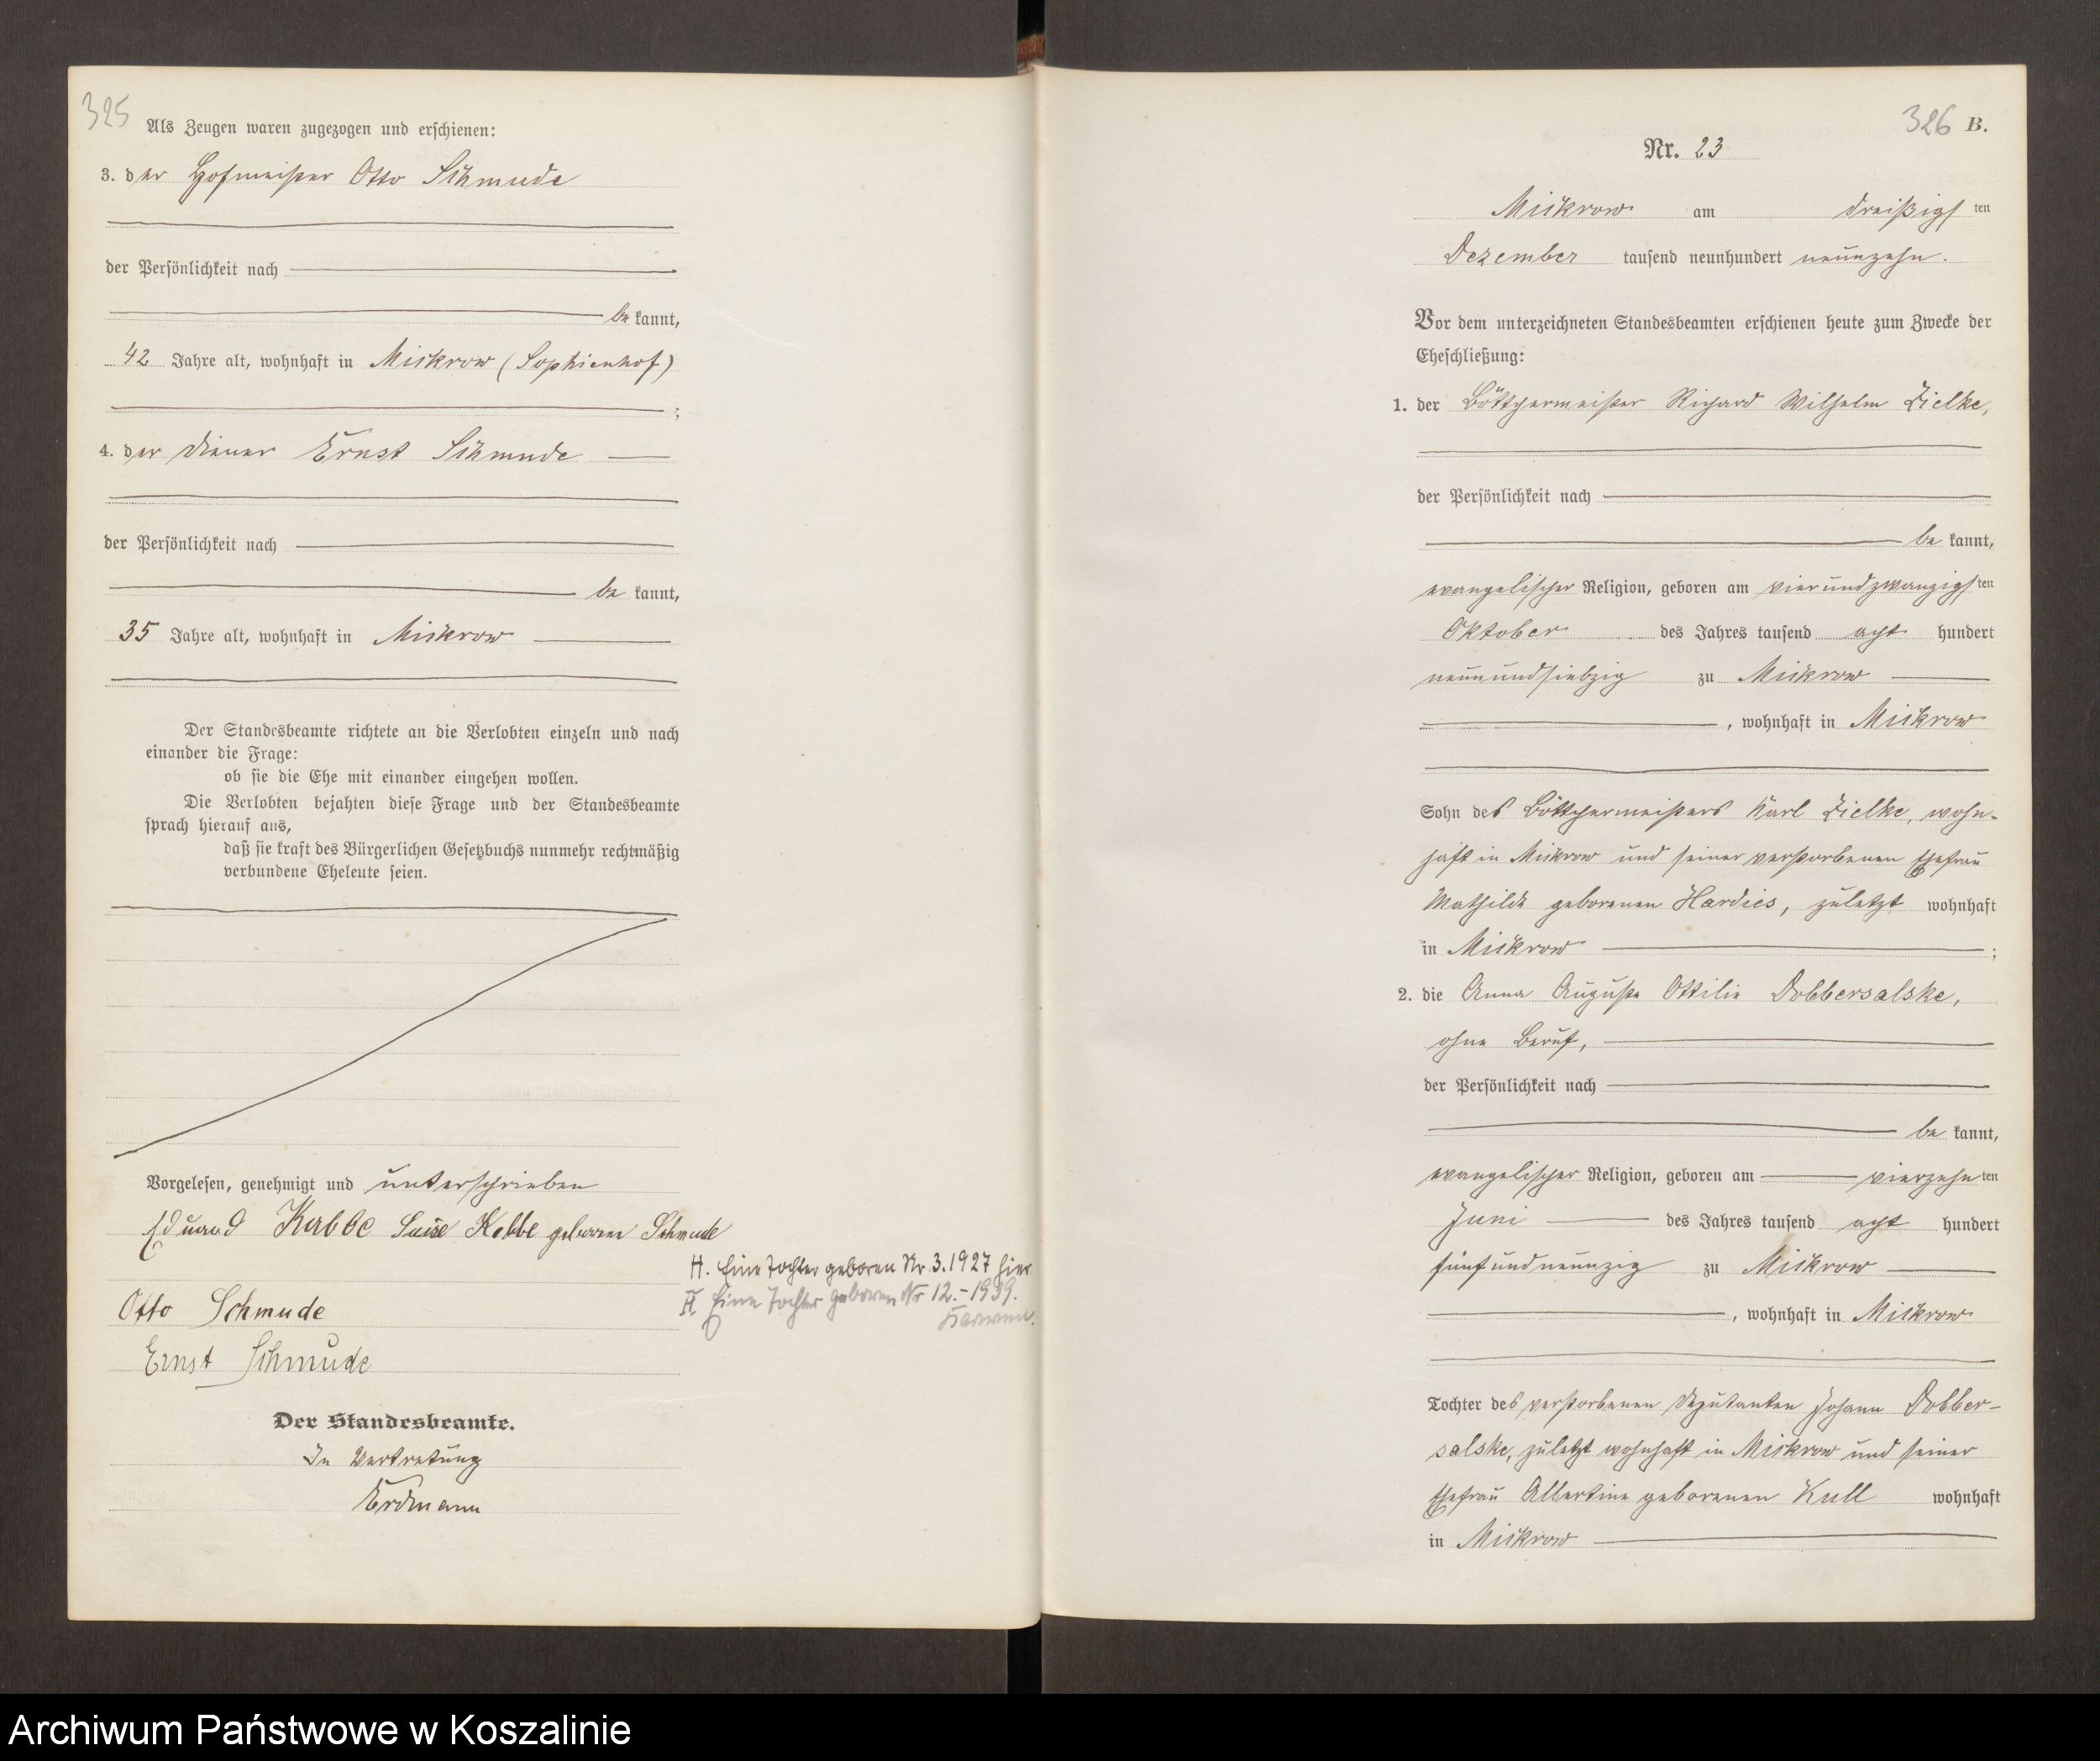 325
Als Zeugen waren zugezogen und erschienen:
3. der Hofmeister Otto Schmude
der Persönlichkeit nach
be kannt,
42 Jahre alt, wohnhaft in Mickrow (Sophienhof)
;
4. der Diener Ernst Schmude
der Persönlichkeit nach
be kannt,
35 Jahre alt, wohnhaft in Mickrow
Der Standesbeamte richtete an die Verlobten einzeln und nach
einander die Frage:
ob sie die Ehe mit einander eingehen wollen.
Die Verlobten bejahten diese Frage und der Standesbeamte
sprach hierauf aus,
daß sie kraft des Bürgerlichen Gesetzbuchs nunmehr rechtmäßig
verbundene Eheleute seien.
Vorgelesen, genehmigt und unterschrieben
Eduard Luise geborene Schmude
Otto Schmude
Ernst Schmude
H. Eine Tochter geboren Nr. 3. 1927 hier
H Eine Tochter geboren Nr 12.-1939.
Der Standesbeamte.
In Vertretung
Erdmann
326 B.
Nr. 23
Mickrow am dreißigsten
Dezember tausend neunhundert neunzehn.
Vor dem unterzeichneten Standesbeamten erschienen heute zum Zwecke der
Eheschließung:
1. der Böttchermeister Richard Wilhelm Zielke,
der Persönlichkeit nach
be kannt,
evangelischer Religion, geboren am vierundzwanzigsten
Oktober des Jahres tausend acht hundert
neunundsiebzig zu Mickrow
, wohnhaft in Mickrow
Sohn des Böttchermeisters Karl Zielke, wohn-
haft in Mickrow und seiner verstorbenen Ehefrau
Mathilde geborenen Hardies, zuletzt wohnhaft
in Mickrow ;
2. die Anna Auguste Ottilie Dobbersalske,
ohne Beruf,
der Persönlichkeit nach
be kannt,
evangelischer Religion, geboren am vierzehnten
Juni des Jahres tausend acht hundert
fünfundneunzig zu Mickrow
, wohnhaft in Mickrow
Tochter des verstorbenen Deputanten Johann Dobber-
salske, zuletzt wohnhaft in Mickrow und seiner
Ehefrau Albertine geborenen Kull wohnhaft
in Mickrow
Archiwum Państwowe w Koszalinie